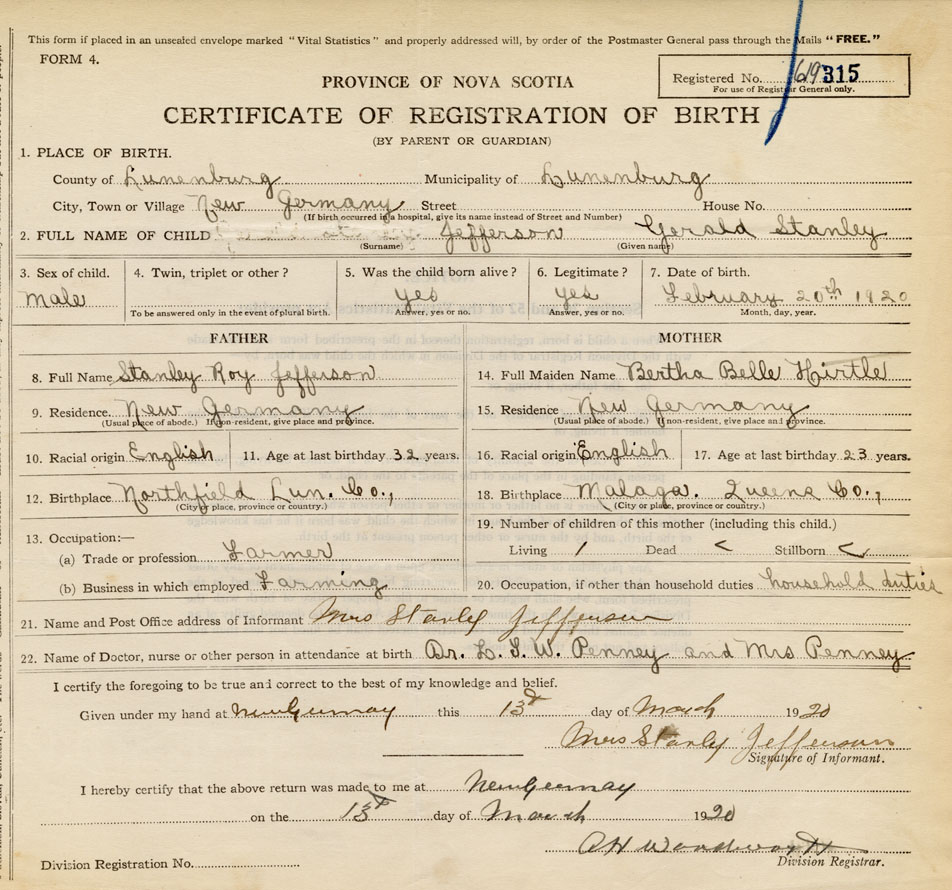 This form if placed in an unsealed envelope marked "Vital Statistics" and properly addressed will, by order of the Postmaster General pass through the Mails "FREE."
FORM 4.
PROVINCE OF NOVA SCOTIA
Registered No. 619315
For use of Registrar General only.
CERTIFICATE OF REGISTRATION OF BIRTH
(BY PARENT OR GUARDIAN)
1. PLACE OF BIRTH.
County of Lunenburg Municipality of Lunenburg
City, Town or Village New Germany Street House No.
(If birth occurred in a hospital, give its name instead of Street and Number)
2. FULL NAME OF CHILD Jefferson Gerald Stanley
(Surname) (Given name)
3. Sex of child. 4. Twin, triplet or other? 5. Was the child born alive? 6. Legitimate? 7. Date of birth.
Male yes yes February 20th 1920
To be answered only in the event of plural birth. Answer, yes or no. Answer, yes or no. Month, day, year.
FATHER MOTHER
8. Full Name Stanley Roy Jefferson 14. Full Maiden Name Bertha Belle Hirtle
9. Residence. New Germany 15. Residence New Germany
(Usual place of abode.) If non-resident, give place and province. (Usual place of abode.) If non-resident, give place and province.
10. Racial origin English 11. Age at last birthday 32 years. 16. Racial origin English 17. Age at last birthday 23 years.
12. Birthplace Northfield Lun. Co., 18. Birthplace Malaga. Queens Co.,
(City or place, province or country.) (City or place, province or country.)
13. Occupation:— 19. Number of children of this mother (including this child.)
(a) Trade or profession Farmer Living 1 Dead Stillborn
(b) Business in which employed Farming 20. Occupation, if other than household duties household duties
21. Name and Post Office address of Informant Mrs Stanly Jefferson
22. Name of Doctor, nurse or other person in attendance at birth Dr. L. S. W. Penney and Mrs Penney
I certify the foregoing to be true and correct to the best of my knowledge and belief.
Given under my hand at New Germany this 13th day of March 1920
Mrs Stanly Jefferson
Signature of Informant.
I hereby certify that the above return was made to me at New Germany
on the 13th day of March 1920
Division Registration No. Division Registrar.